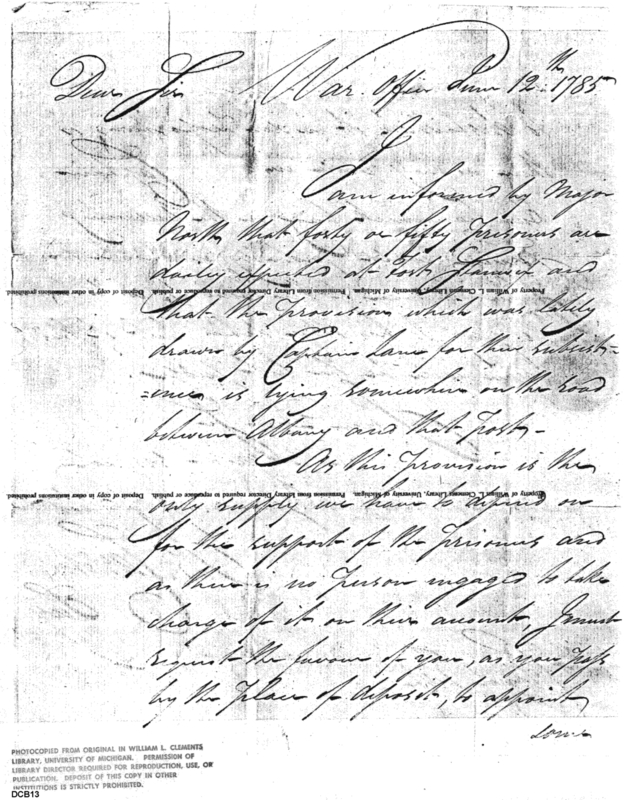 Dear Sir War Office June 12th. 1785
I
am informed by Major
North that forty or fifty prisoners are
daily expected at Fort Stanwix and
Property of William L. Clements Library, University of Michigan. Permission from Library Director required to reproduce or publish. Deposit of copy in other institutions prohibited.
that the provision which was lately
drawn by Captain Lane for their subsist-
=ence, is lying somewhere on the road
between Albany and that post -
As this provision is the
Property of William L. Clements Library, University of Michigan. Permission from Library Director required to reproduce or publish. Deposit of copy in other institutions prohibited.
only supply we have to depend on
for the support of the prisoners and
as there is no person engaged to take
charge of it on their account, I must
request the favour of you, as you pass
by the place of deposit, to appoint
some
PHOTOCOPIED FROM ORIGINAL IN WILLIAM L. CLEMENTS
LIBRARY, UNIVERSITY OF MICHIGAN. PERMISSION OF
LIBRARY DIRECTOR REQUIRED FOR REPRODUCTION, USE, OR
PUBLICATION. DEPOSIT OF THIS COPY IN OTHER
INSTITUTIONS IS STRICTLY PROHIBITED.
DCB13